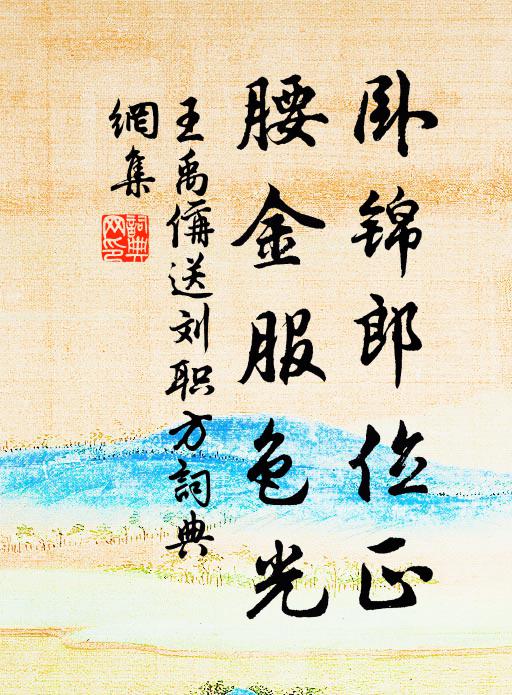 卧锦郎位正
腰金服色光
王禹偁送刘职方詞典
網集
詞典網印